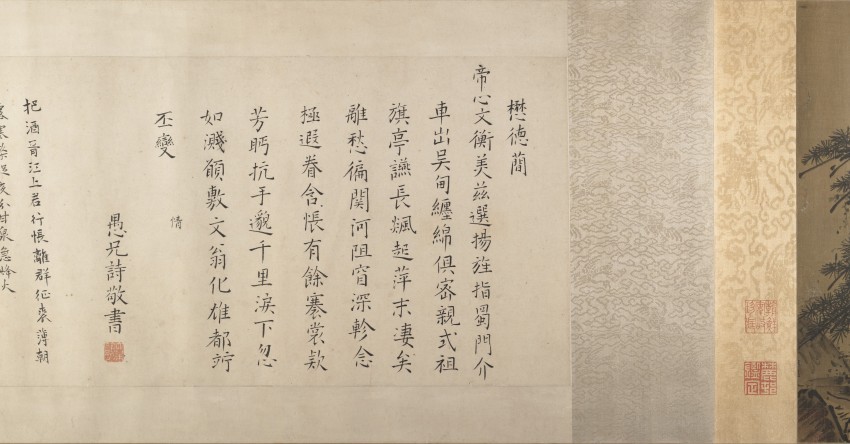 懋德簡
帝心文衡美茲選揚旌指蜀門介
車出吳甸纏綿俱密親式祖
旗亭讌長飆起萍末淒矣
離愁徧関河阻脩深軫念
極遐眷含悵有餘褰裳欵
芳眄抗手邈千里淚下忽
如濺願敷文翁化雄都竚
丕變
愚兄詩敬書
把酒胥江上若行悵離群征裘薄朝